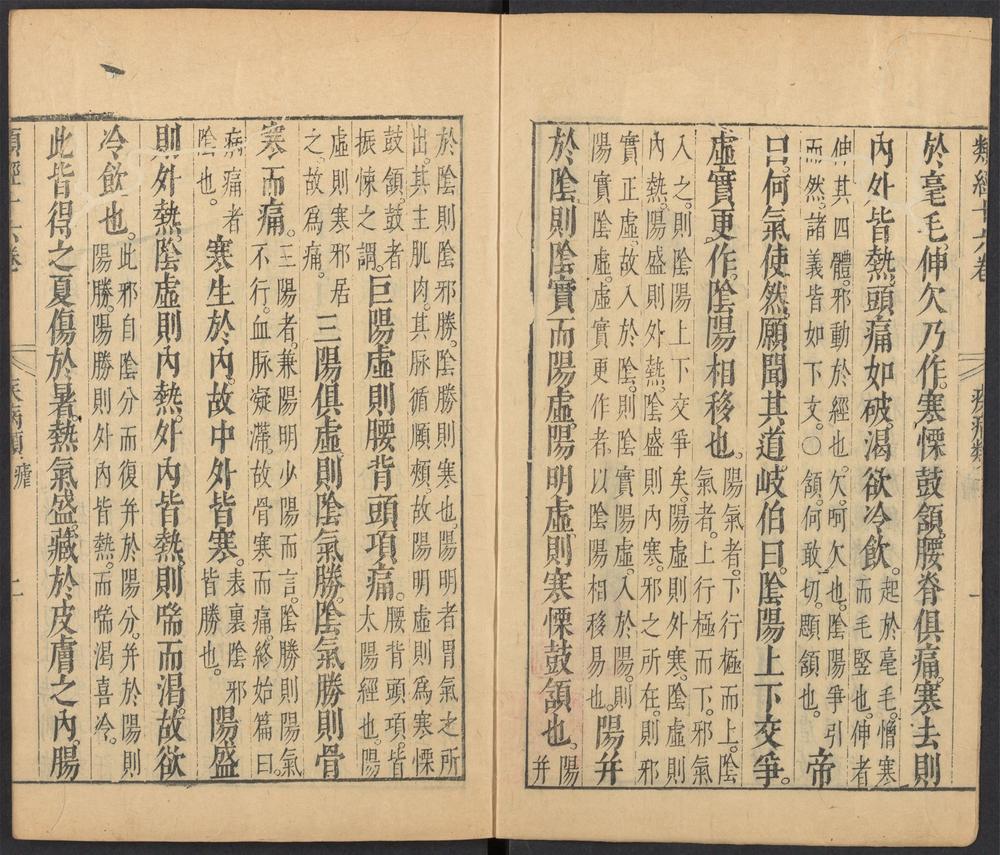 類經十六卷
疾病類
一
於毫毛。伸欠乃作。寒慄鼓頷。腰脊俱痛。寒去則
內外皆熱。頭痛如破。渴欲冷飲。
起於毫毛。憎寒
而毛竪也。伸者
伸其四體。邪動於經也。欠。呵欠也。陰陽爭引
而然。諸義皆如下文。○頷。何敢切。顋頷也。
帝
曰。何氣使然。願聞其道。岐伯曰。陰陽上下交爭。
虛實更作。陰陽相移也。
陽氣者。下行極而上。陰
氣者。上行極而下。邪氣
入之。則陰陽上下交爭矣。陽虛則外寒。陰虛則
內熱。陽盛則外熱。陰盛則內寒。邪之所在。則邪
實正虛。故入於陰。則陰實陽虛。入於陽。則
陽實陰虛。虛實更作者。以陰陽相移易也。
陽并
於陰。則陰實而陽虛。陽明虛。則寒慄鼓頷也。
陽
并
於陰則陰邪勝。陰勝則寒也。陽明者胃氣之所
出。其主肌肉。其脉循頤頰。故陽明虛則爲寒慄
鼓頷。鼓者
振悚之謂。
巨陽虛則腰背頭項痛。
腰背頭項。皆
太陽經也。陽
虛則寒邪居
之。故爲痛。
三陽俱虛。則陰氣勝。陰氣勝則骨
寒而痛。
三陽者。兼陽明少陽而言。陰勝則陽氣
不行。血脉凝滯。故骨寒而痛。終始篇曰。
病痛者
陰也。
寒生於內。故中外皆寒。
表裏陰邪
皆勝也。
陽盛
則外熱。陰虛則內熱。外內皆熱。則喘而渴。故欲
冷飲也。
此邪自陰分而復并於陽分。并於陽則
陽勝。陽勝則外內皆熱。而喘渴喜冷。
此皆得之夏傷於暑。熱氣盛。藏於皮膚之內。腸
類經十六卷
疾病類
瘧